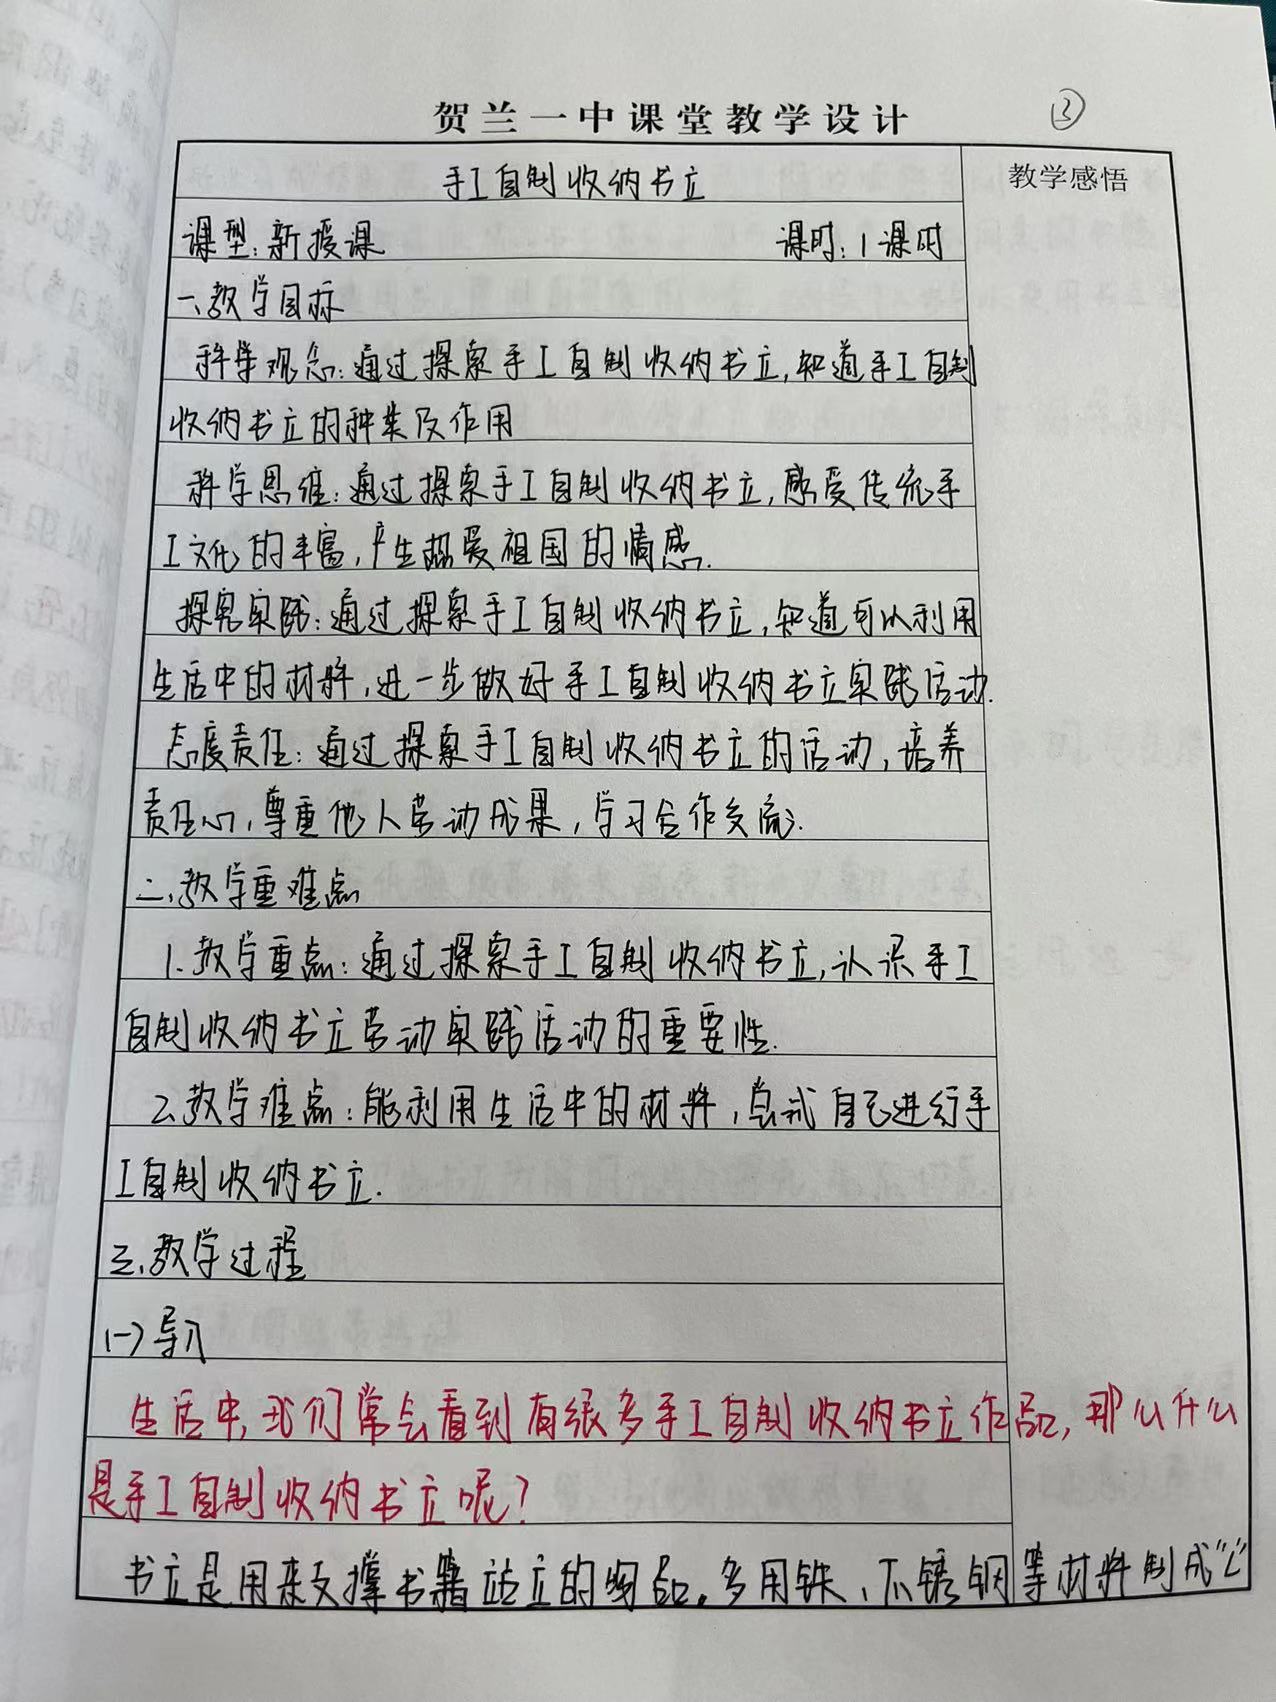 贺兰一中课堂教学设计
③
手工自制收纳书立
教学感悟
课型：新授课 课时：1课时
一、教学目标
科学观念：通过探索手工自制收纳书立，知道手工自制
收纳书立的种类及作用
科学思维：通过探索手工自制收纳书立，感受传统手
工文化的丰富，产生热爱祖国的情感.
探究实践：通过探索手工自制收纳书立，知道可以利用
生活中的材料，进一步做好手工自制收纳书立实践活动.
态度责任：通过探索手工自制收纳书立的活动，培养
责任心，尊重他人劳动成果，学习合作交流.
二、教学重难点
1.教学重点：通过探索手工自制收纳书立，认识手工
自制收纳书立劳动实践活动的重要性.
2.教学难点：能利用生活中的材料，尝试自己进行手
工自制收纳书立.
三、教学过程
(一)导入
生活中，我们常会看到有很多手工自制收纳书立作品，那么什么
是手工自制收纳书立呢？
书立是用来支撑书籍站立的物品。多用铁、不锈钢等材料制成“L”